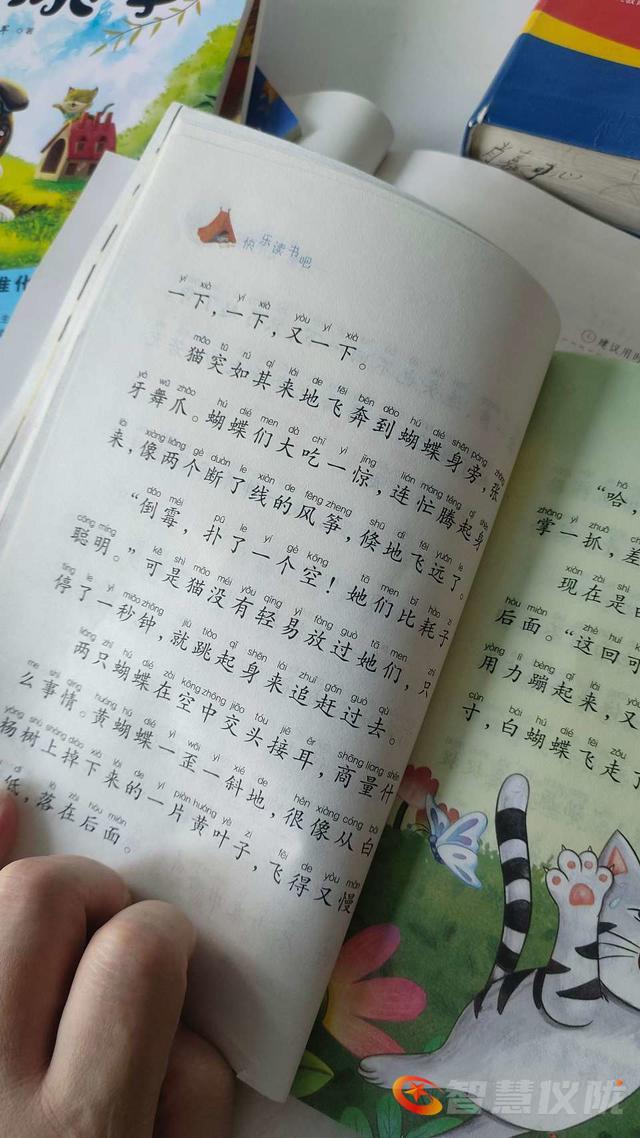 快乐读书吧
yí xià yí xià yòu yí xià
一下，一下，又一下。
māo tū rú qí lái de fēi bēn dào hú dié shēn páng zhāng
猫突如其来地飞奔到蝴蝶身旁，张
yá wǔ zhǎo hú dié men dà chī yì jīng lián máng téng qǐ shēn
牙舞爪。蝴蝶们大吃一惊，连忙腾起身
lái xiàng liǎng gè duàn le xiàn de fēng zheng shū dì fēi yuǎn le
来，像两个断了线的风筝，倏地飞远了。
dǎo méi pū le yí gè kōng tā men bǐ hào zi
“倒霉，扑了一个空！她们比耗子
cōng míng kě shì māo méi yǒu qīng yì fàng guò tā men zhǐ
聪明。”可是猫没有轻易放过她们，只
tíng le yì miǎo zhōng jiù tiào qǐ shēn lái zhuī gǎn guò qù
停了一秒钟，就跳起身来追赶过去。
liǎng zhī hú dié zài kōng zhōng jiāo tóu jiē ěr shāng liang shén
两只蝴蝶在空中交头接耳，商量什
me shì qing huáng hú dié yì wāi yì xié de hěn xiàng cóng bái
么事情。黄蝴蝶一歪一斜地，很像从白
yáng shù shàng diào xià lái de yí piàn huáng yè zi fēi de yòu màn
杨树上掉下来的一片黄叶子，飞得又慢
dī luò zài hòu miàn
低，落在后面。
建议用时
hā
“哈，
zhǎng yì zhuā chà
掌一抓，差
xiàn zài shì
现在是白
hòu miàn zhè huí kě
后面。“这回可
yòng lì bèng qǐ lái yòu
用力蹦起来，又
cùn bái hú dié fēi zǒu
寸，白蝴蝶飞走了
智慧仪陇